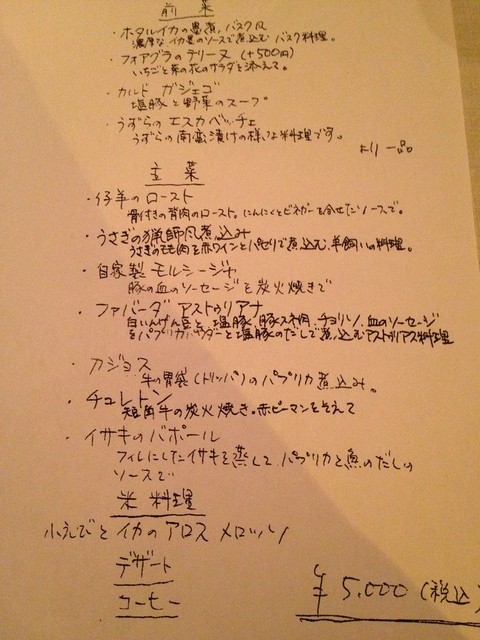 前菜
・ホタルイカの墨煮、バスク風
濃厚なイカ墨のソースで煮込む バスク料理。
・フォアグラのテリーヌ (+500円)
いちごと菜の花のサラダを添えて。
・カルド ガジェゴ
塩豚と野菜のスープ
・うずらの エスカベッチェ
うずらの南蛮漬けの様な料理です。
より一品
主菜
・仔羊のロースト
骨付きの背肉のロースト。にんにくとビネガーを合せたソースで。
・うさぎの猟師風煮込み
うさぎのモモ肉を赤ワインとパセリで煮込む、羊飼いの料理。
・自家製 モルシージャ
豚の血のソーセージを炭火焼きで
・ファバーダ アストゥリアナ
白いんげん豆と塩豚、豚スネ肉、チョリソ、血のソーセージ
をパプリカパウダーと塩豚のだしで煮込むアストゥリアス料理
・カジョス
牛の胃袋(トリッパ)のパプリカ煮込み。
・チュレトン
短角牛の炭火焼き。赤ピーマンをそえて
・イサキのバポール
フィレにしたイサキを蒸して パプリカと魚のだしの
ソースで
米料理
小えびとイカのアロス メロッソ
デザート
コーヒー
¥5.000 (税込)